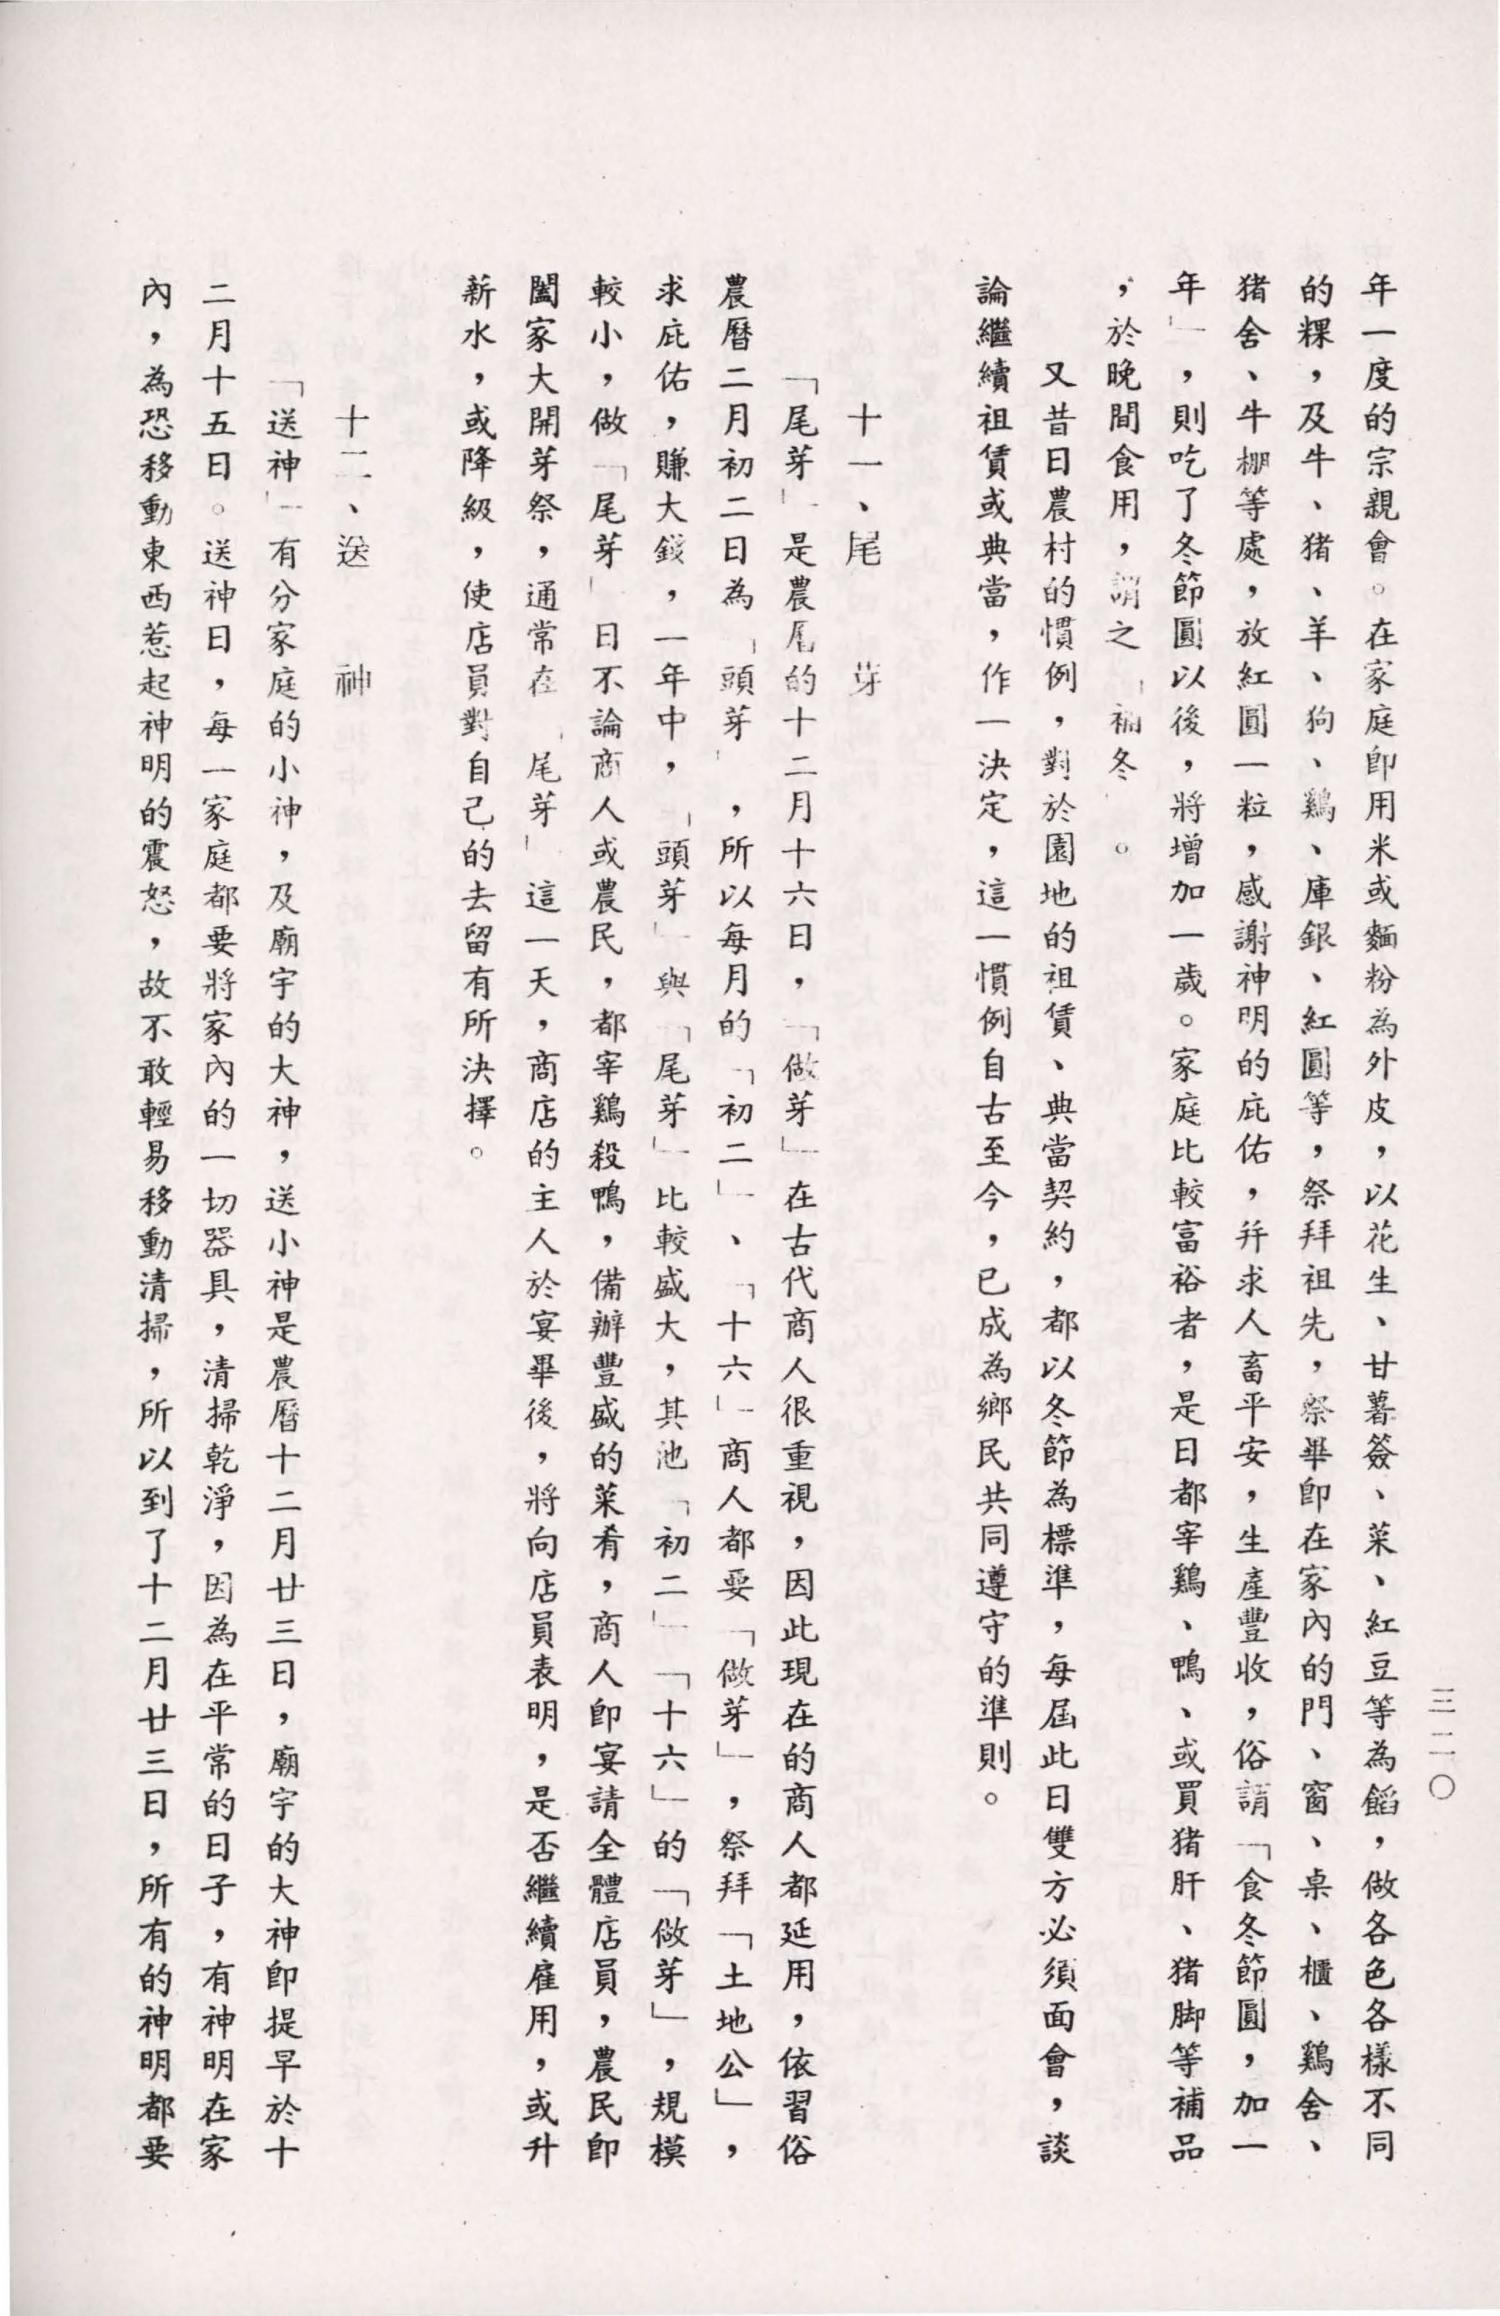 三二〇
年一度的宗親會。在家庭即用米或麵粉為外皮，以花生、甘薯簽、菜、紅豆等為餡，做各色各樣不同
的粿，及牛、猪、羊、狗、鷄、庫銀、紅圓等，祭拜祖先，祭畢即在家內的門、窗、桌、櫃、鷄舍、
猪舍、牛棚等處，放紅圓一粒，感謝神明的庇佑，并求人畜平安，生產豐收，俗謂「食冬節圓，加一
年」，則吃了冬節圓以後，將增加一歲。家庭比較富裕者，是日都宰鷄、鴨、或買猪肝、猪脚等補品
，於晚間食用，謂之「補冬」。
又昔日農村的慣例，對於園地的祖賃、典當契約，都以冬節為標準，每屆此日雙方必須面會，談
論繼續祖賃或典當，作一決定，這一慣例自古至今，已成為鄉民共同遵守的準則。
十一、尾　芽
「尾芽」是農曆的十二月十六日，「做芽」在古代商人很重視，因此現在的商人都延用，依習俗
農曆二月初二日為「頭芽」，所以每月的「初二」、「十六」商人都要「做芽」，祭拜「土地公」，
求庇佑，賺大錢，一年中，「頭芽」與「尾芽」比較盛大，其池「初二」「十六」的「做芽」，規模
較小，做「尾芽」日不論商人或農民，都宰鷄殺鴨，備辦豐盛的菜肴，商人即宴請全體店員，農民即
闔家大開芽祭，通常在「尾芽」這一天，商店的主人於宴畢後，將向店員表明，是否繼續雇用，或升
新水，或降級，使店員對自己的去留有所決擇。
十二、送　神
「送神」有分家庭的小神，及廟宇的大神，送小神是農曆十二月廿三日，廟宇的大神即提早於十
二月十五日。送神日，每一家庭都要將家內的一切器具，清掃乾淨，因為在平常的日子，有神明在家
內，為恐移動東西惹起神明的震怒，故不敢輕易移動清掃，所以到了十二月廿三日，所有的神明都要